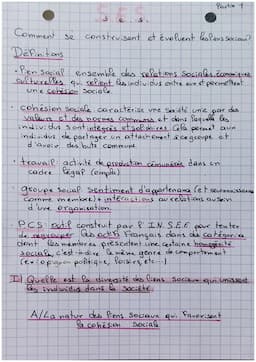 Partie 1
S E S
s e s.
Comment se construisent et évoluent les liens sociaux?
Définitions
• Lien social ensemble des relations sociales, économiques
culturelles qui relient les individus entre eux et permettent
une cohésion sociale.
• cohésion sociale caractérise une société unie par des
valeurs et des normes communes et dans laquelle les
individus sont intégrés et solidaires. Cela permet aux
individus de partager un attachement à ce groupe et
d'avoir des buts communs
• travail activité de production rémunérée dans un
cadre légal (emploi)
• groupe social sentiment d'appartenance (et reconnaissance
comme membre) + interactions ou relations au sein
d'une organisation.
• PCS outil construit par l'I.N.S.E.E pour tenter
de regrouper les actifs Français dans des catégories
dont les membres présentent une certaine homogénéité
sociale, c'est à dire le même genre de comportement
(ex: opinion politique, loisirs, etc...)
I) Quelle est la diversité des liens sociaux qui unissent
les individus dans la société
A/ La nature des liens sociaux qui favorisent
la cohésion sociale